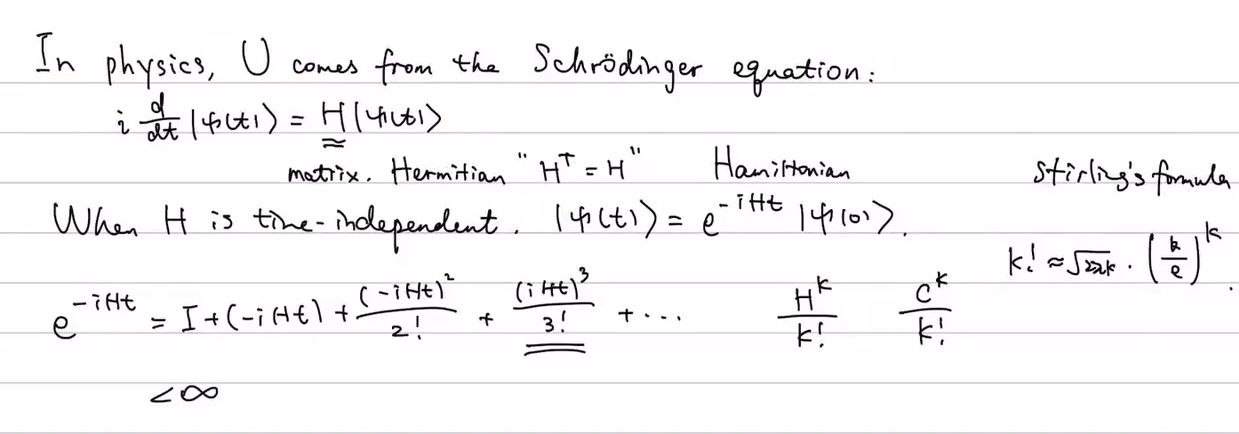 In physics, U comes from the Schrödinger equation:
i d/dt |ψ(t)⟩ = H|ψ(t)⟩
matrix. Hermitian "H† = H" Hamiltonian
Stirling's formula
When H is time-independent. |ψ(t)⟩ = e^{-iHt} |ψ(0)⟩.
k! ≈ √2πk · (k/e)^k.
e^{-iHt} = I + (-iHt) + (-iHt)²/2! + (iHt)³/3! + ... H^k/k! C^k/k!
<∞